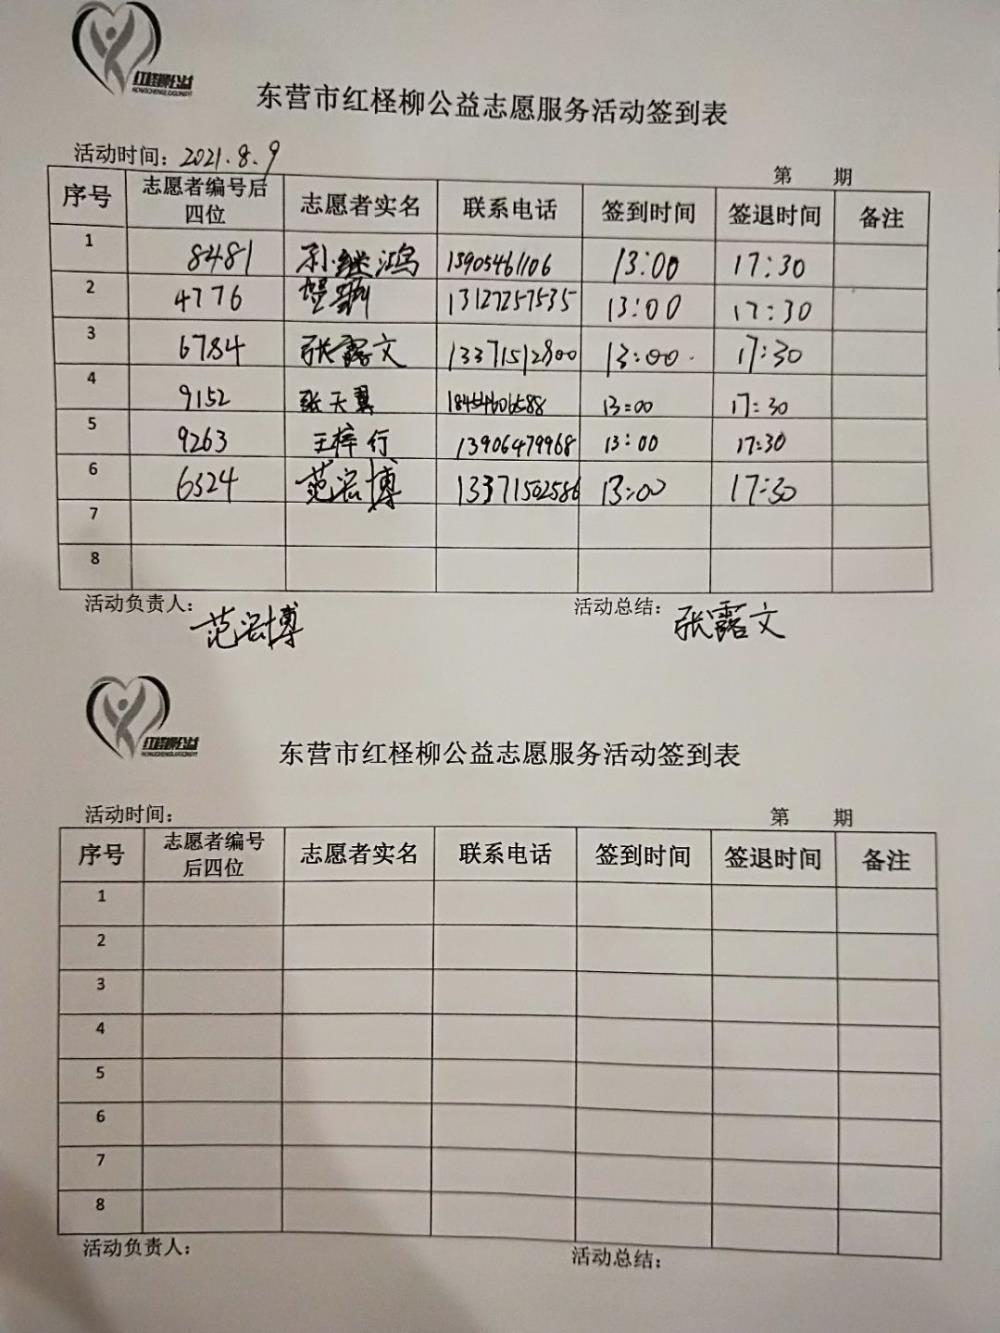 红柽柳公益
东营市红柽柳公益志愿服务活动签到表
活动时间：2021.8.9 第 期
序号 志愿者编号后四位 志愿者实名 联系电话 签到时间 签退时间 备注
1 8481 孙继鸿 13905461106 13:00 17:30
2 4776 13127257535 13:00 17:30
3 6784 张露文 13371512800 13:00 17:30
4 9152 张天翼 18454606588 13:00 17:30
5 9263 王梓行 13906479968 13:00 17:30
6 6324 范宏博 13371502586 13:00 17:30
7
8
活动负责人：范宏博 活动总结：张露文
红柽柳公益
东营市红柽柳公益志愿服务活动签到表
活动时间： 第 期
序号 志愿者编号后四位 志愿者实名 联系电话 签到时间 签退时间 备注
1
2
3
4
5
6
7
8
活动负责人： 活动总结：